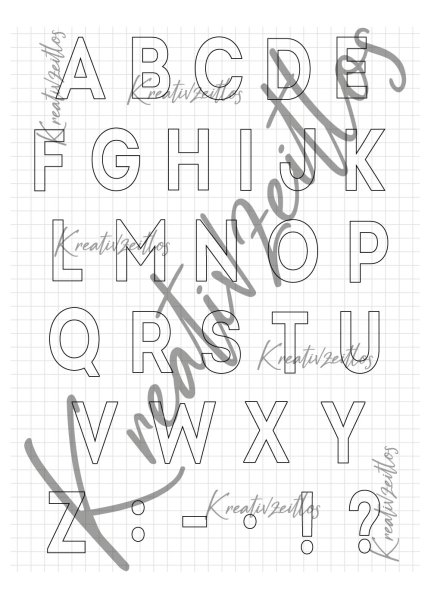 A B C D E
F G H I J K
L M N O P
Q R S T U
V W X Y
Z : - . ! ?
Kreativzeitlos
Kreativzeitlos
Kreativzeitlos
Kreativzeitlos
Kreativzeitlos
Kreativzeitlos
Kreativzeitlos